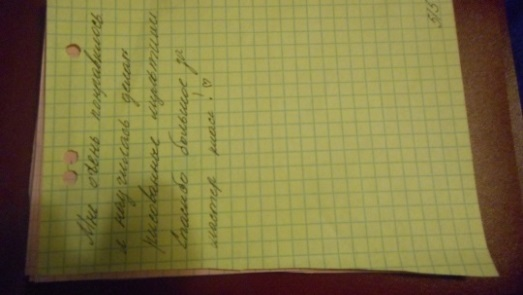 Мне очень понравилось
я научилась делать
рисование
Спасибо большое за
мастер класс! ♡
5/5